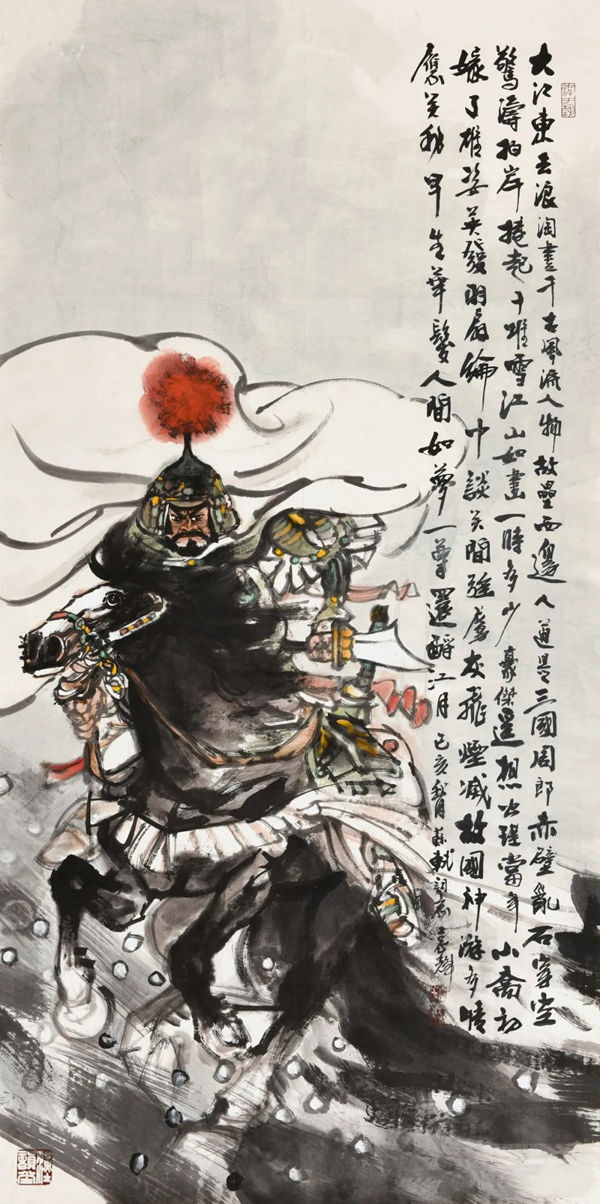 大江東去浪淘盡千古風流人物故壘西邊人道是三國周郎赤壁亂石穿空
驚濤拍岸捲起千堆雪江山如畫一時多少豪傑遙想公瑾當年小喬初
嫁了雄姿英發羽扇綸巾談笑間強虜灰飛煙滅故國神遊多情
應笑我早生華髮人間如夢一尊還酹江月己亥秋月蘇軾詞意